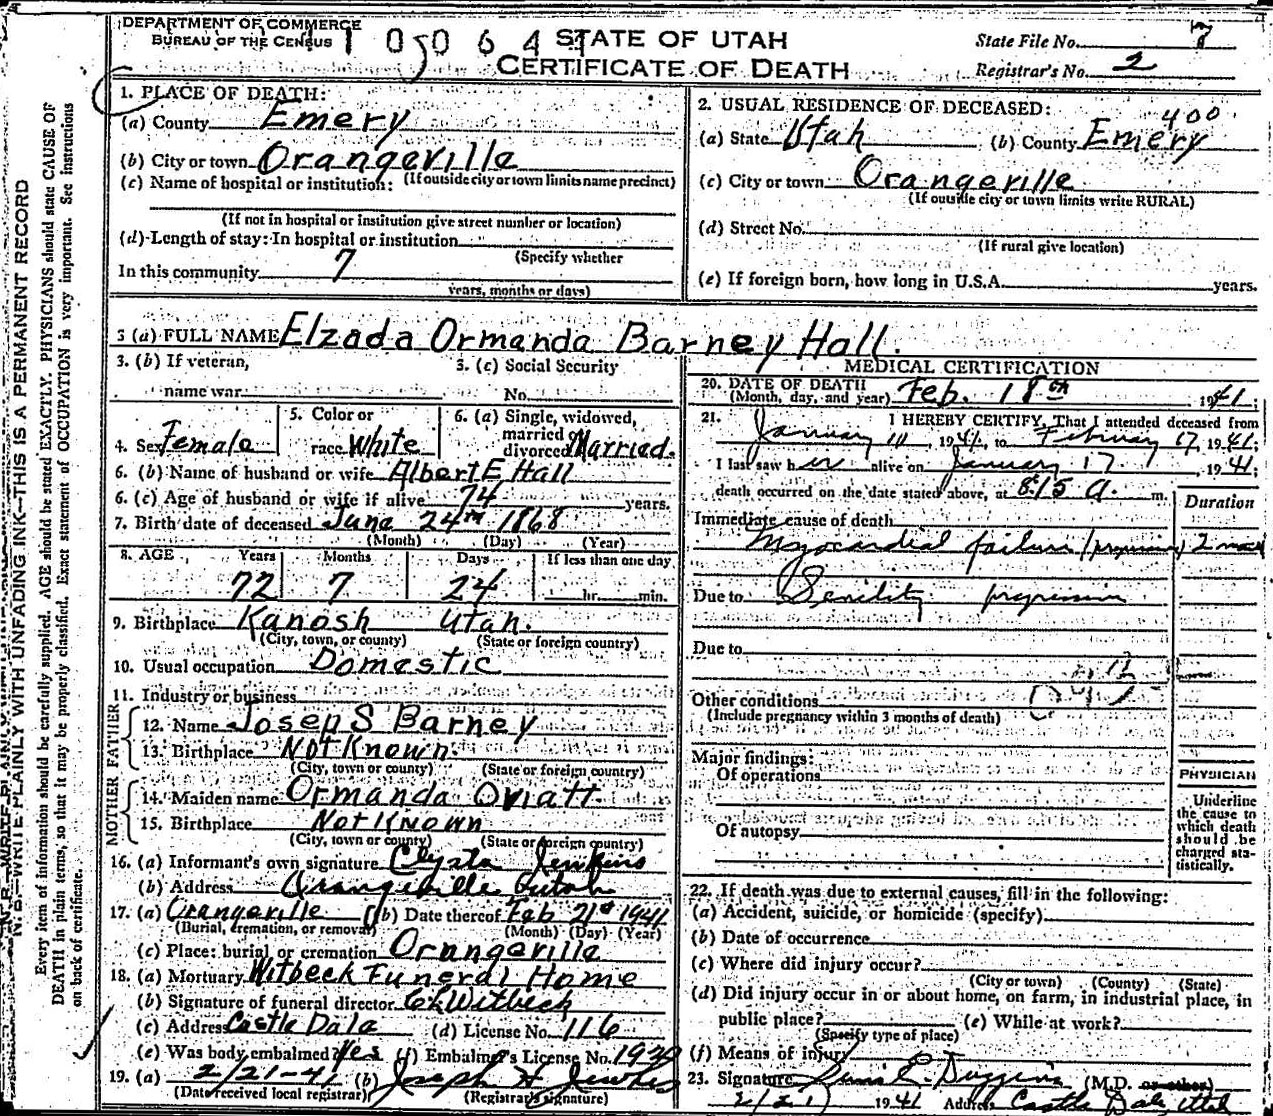 DEPARTMENT OF COMMERCE
BUREAU OF THE CENSUS
STATE OF UTAH
CERTIFICATE OF DEATH
State File No. 7
Registrar's No. 2
1. PLACE OF DEATH:
(a) County Emery
(b) City or town Orangeville
(If outside city or town limits name precinct)
(c) Name of hospital or institution:
(If not in hospital or institution give street number or location)
(d) Length of stay: In hospital or institution
(Specify whether
In this community 7
years, months or days)
2. USUAL RESIDENCE OF DECEASED:
400
(a) State Utah (b) County Emery
(c) City or town Orangeville
(If outside city or town limits write RURAL)
(d) Street No.
(If rural give location)
(e) If foreign born, how long in U.S.A. years.
3 (a) FULL NAME Elzada Ormanda Barney Hall.
3. (b) If veteran,
name war
3. (c) Social Security
No.
4. Sex Female
5. Color or
race White
6. (a) Single, widowed,
married
divorced Married.
6. (b) Name of husband or wife Albert E Hall
6. (c) Age of husband or wife if alive 74 years.
7. Birth date of deceased June 24th 1868
(Month) (Day) (Year)
8. AGE Years Months Days If less than one day
72 7 24 hr. min.
9. Birthplace Kanosh Utah.
(City, town, or county) (State or foreign country)
10. Usual occupation Domestic
11. Industry or business
FATHER
12. Name Josep S Barney
13. Birthplace Not Known.
(City, town or county) (State or foreign country)
MOTHER
14. Maiden name Ormanda Oviatt.
15. Birthplace Not Known
(City, town or county) (State or foreign country)
16. (a) Informant's own signature Clysta Jenkins
(b) Address Orangeville Utah
17. (a) Orangeville (b) Date thereof Feb 21st 1941
(Burial, cremation, or removal) (Month) (Day) (Year)
(c) Place: burial or cremation Orangeville
18. (a) Mortuary Witbeck Funeral Home
(b) Signature of funeral director Witbeck
(c) Address Castle Dale (d) License No. 116
(e) Was body embalmed? Yes (f) Embalmer's License No.
19. (a) 2/21-41 (b) Joseph H Jewkes
(Date received local registrar) (Registrar's signature)
MEDICAL CERTIFICATION
20. DATE OF DEATH
(Month, day, and year) Feb. 18th 1941
21. I HEREBY CERTIFY, That I attended deceased from
January 11, 1941, to February 17 1941;
I last saw her alive on January 17 1941;
death occurred on the date stated above, at 8:15 a. m.
Duration
Immediate cause of death
Myocardial failure 2
Due to Senility progressive
Due to
Other conditions
(Include pregnancy within 3 months of death)
Major findings:
Of operations
Of autopsy
PHYSICIAN
Underline
the cause to
which death
should be
charged sta-
tistically.
22. If death was due to external causes, fill in the following:
(a) Accident, suicide, or homicide (specify)
(b) Date of occurrence
(c) Where did injury occur?
(City or town) (County) (State)
(d) Did injury occur in or about home, on farm, in industrial place, in
public place? (e) While at work?
(Specify type of place)
(f) Means of injury
23. Signature Duggins (M.D. or other)
2/21 1941 Address Castle Dale Utah
N. B.—WRITE PLAINLY WITH UNFADING INK—THIS IS A PERMANENT RECORD
Every item of information should be carefully supplied. AGE should be stated EXACTLY. PHYSICIANS should state CAUSE OF
DEATH in plain terms, so that it may be properly classified. Exact statement of OCCUPATION is very important. See instructions
on back of certificate.